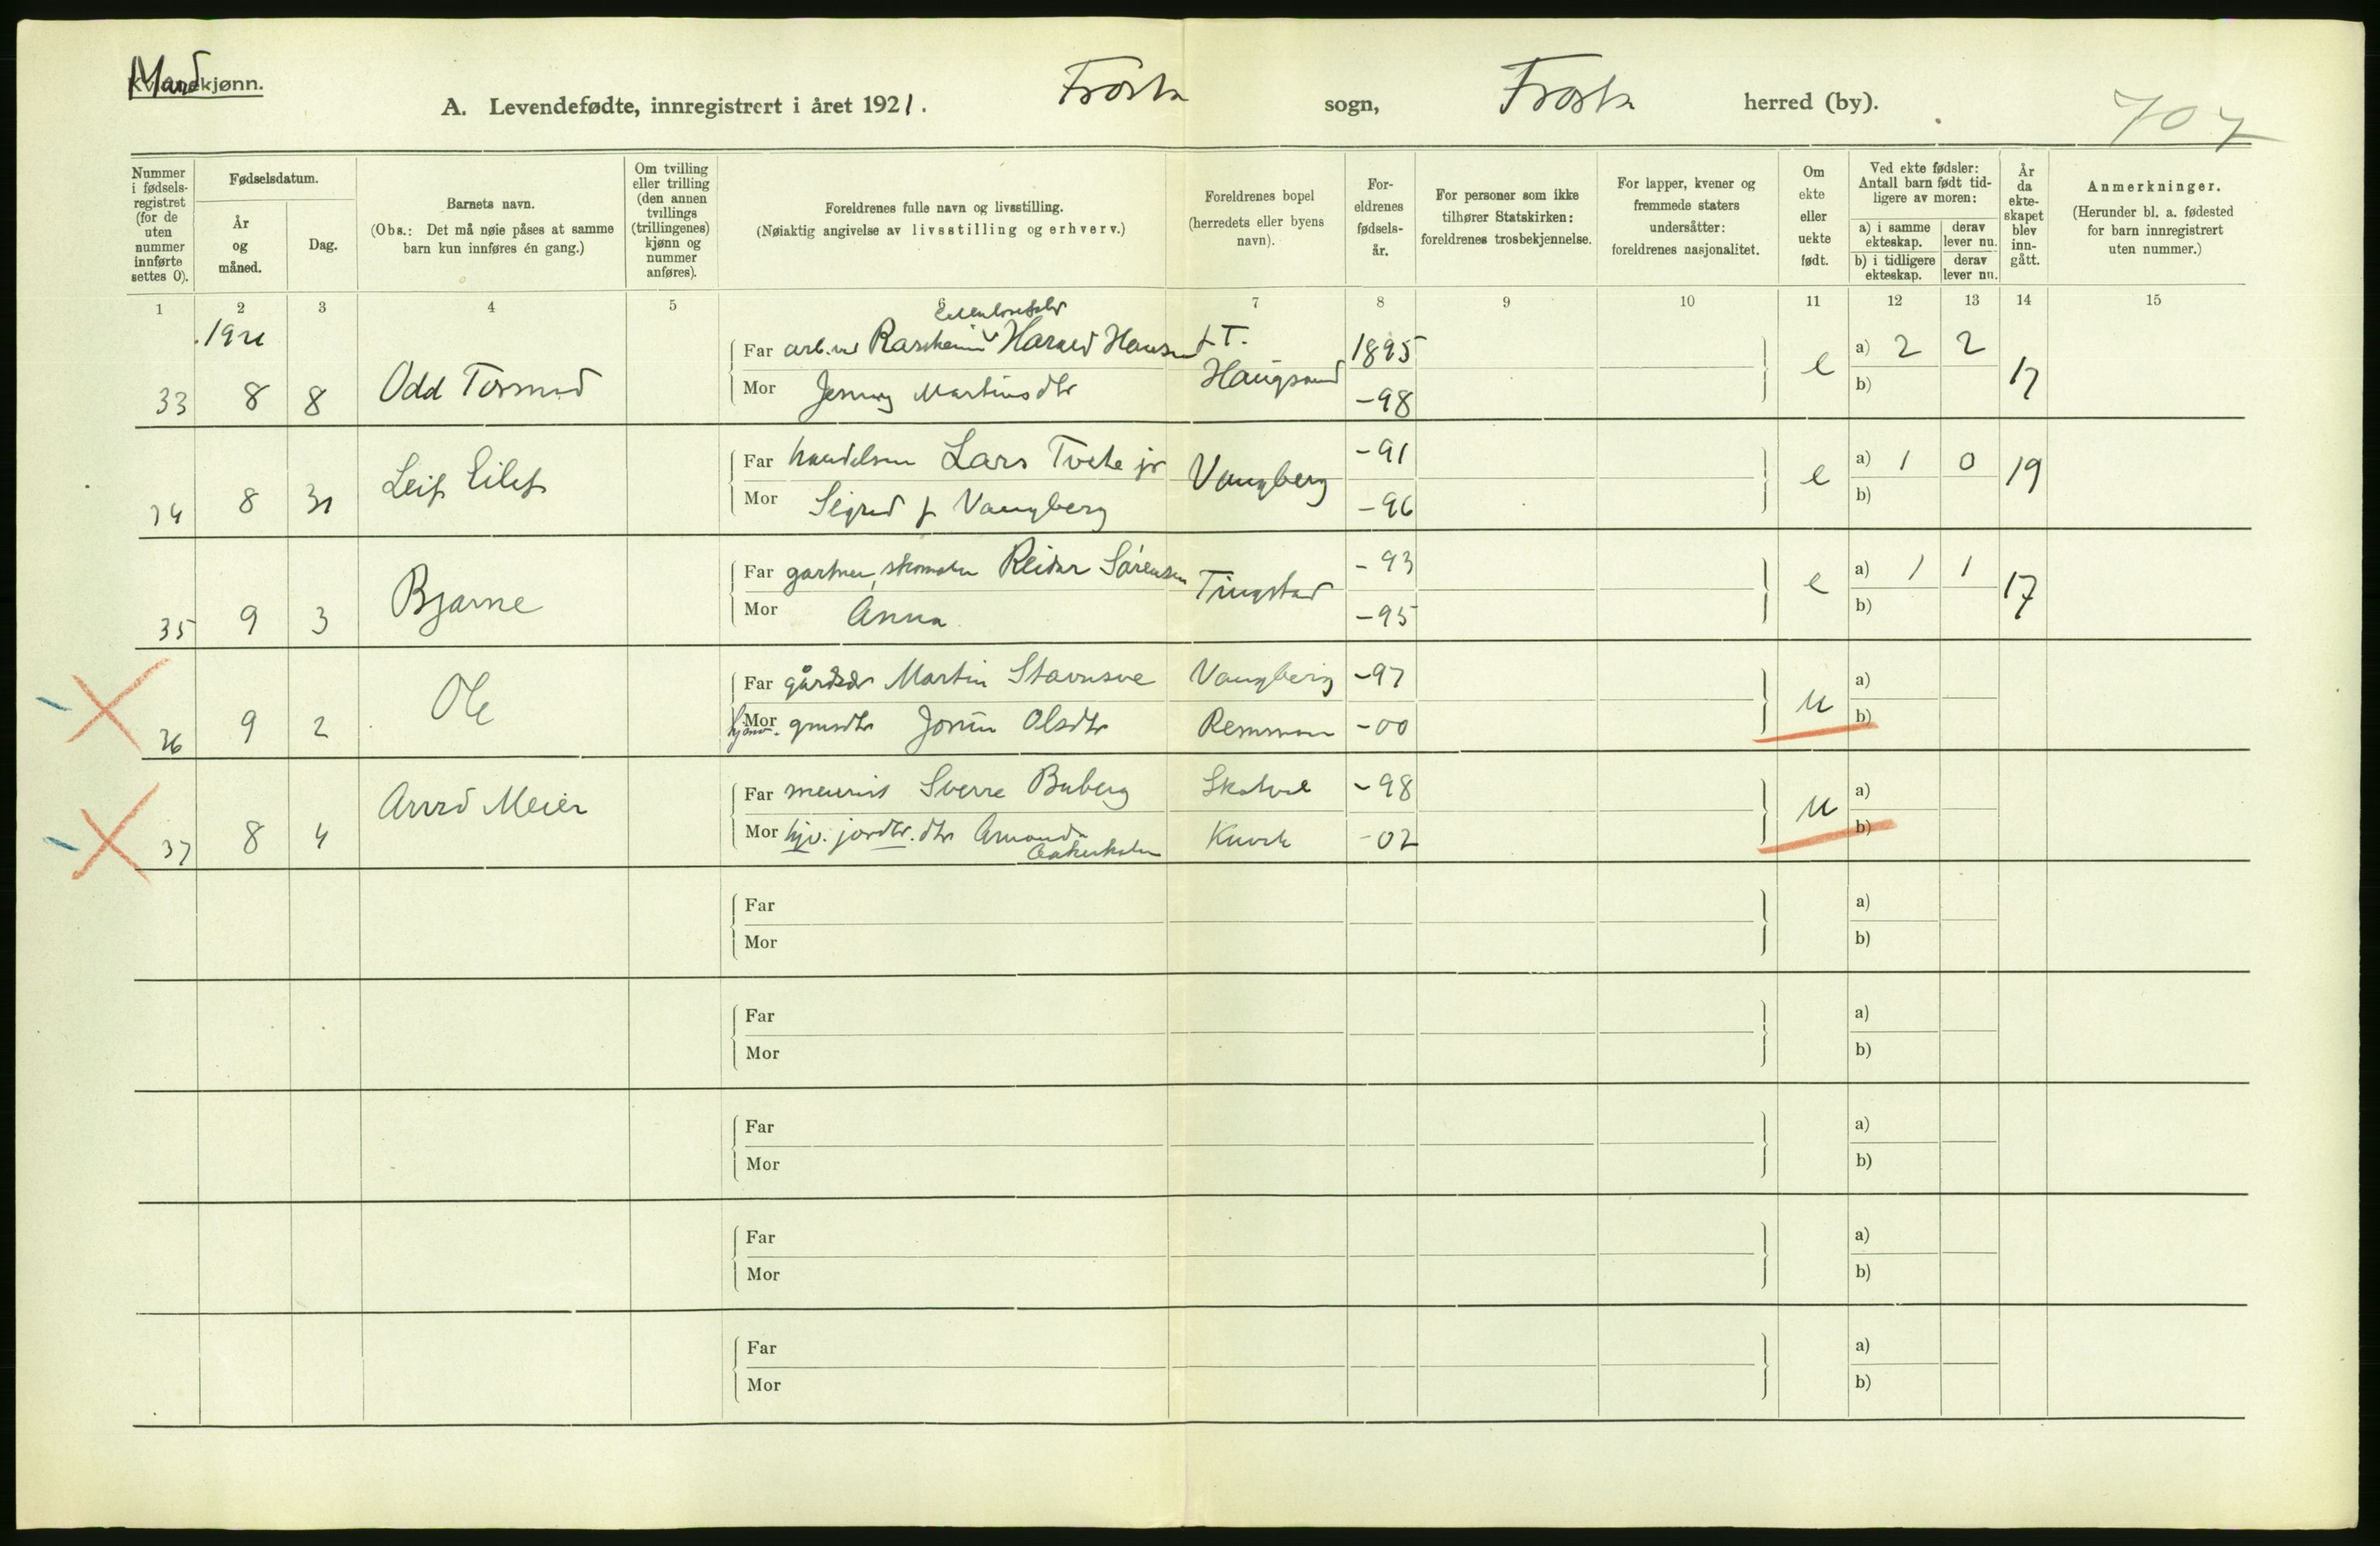 Mand
Kvindekjønn.
A. Levendefødte, innregistrert i året 1921.
Frosta sogn, Frosta herred (by).
707
Nummer i fødsels-registret (for de uten nummer innførte settes 0).
Fødselsdatum.
År og måned.
Dag.
Barnets navn.
(Obs.: Det må nøie påses at samme barn kun innføres én gang.)
Om tvilling eller trilling (den annen tvillings (trillingenes) kjønn og nummer anføres).
Foreldrenes fulle navn og livsstilling.
(Nøiaktig angivelse av livsstilling og erhverv.)
Foreldrenes bopel (herredets eller byens navn).
For-eldrenes fødsels-år.
For personer som ikke tilhører Statskirken: foreldrenes trosbekjennelse.
For lapper, kvener og fremmede staters undersåtter: foreldrenes nasjonalitet.
Om ekte eller uekte født.
Ved ekte fødsler: Antall barn født tid-ligere av moren:
a) i samme ekteskap. derav lever nu.
b) i tidligere ekteskap. derav lever nu.
År da ekte-skapet blev inn-gått.
Anmerkninger.
(Herunder bl. a. fødested for barn innregistrert uten nummer.)
1 2 3 4 5 6 7 8 9 10 11 12 13 14 15
1921
33 8 8 Odd Tormod
Far Harald Hansen f. T. 1895 e a) 2 2 17
Mor Jenny Martinsdtr Haugsand -98 b)
34 8 31 Leif Eilef
Far handelsm Lars Tvete jr Vangberg -91 e a) 1 0 19
Mor Sigrid f. Vangberg -96 b)
35 9 3 Bjarne
Far gartner, skomaker Reidar Sörensen Tingstad -93 e a) 1 1 17
Mor Anna -95 b)
36 9 2 Ole
Far Martin Stavnsve Vangberg -97 u a)
Mor hjemv. grmdtr Olsdtr -00 b)
37 8 4 Arvid Meier
Far meierist Sverre Buberg Skatval -98 u a)
Mor hjv. jordbr. dtr Amanda -02 b)
Far a)
Mor b)
Far a)
Mor b)
Far a)
Mor b)
Far a)
Mor b)
Far a)
Mor b)